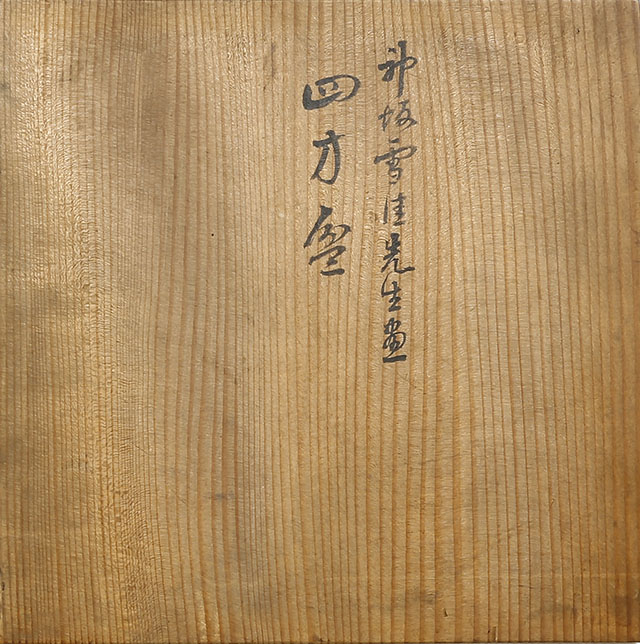 神坂雪佳先生画
四方盆